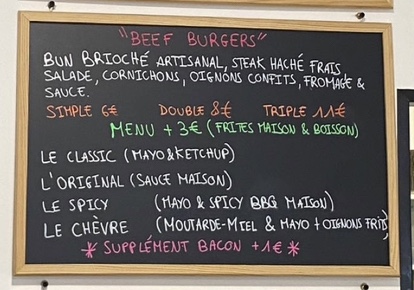 "BEEF BURGERS"
BUN BRIOCHÉ ARTISANAL, STEAK HACHÉ FRAIS
SALADE, CORNICHONS, OIGNONS CONFITS, FROMAGE &
SAUCE.
SIMPLE 6€ DOUBLE 8€ TRIPLE 11€
MENU + 3€ (FRITES MAISON & BOISSON)
LE CLASSIC (MAYO & KETCHUP)
L'ORIGINAL (SAUCE MAISON)
LE SPICY (MAYO & SPICY BBQ MAISON)
LE CHÈVRE (MOUTARDE-MIEL & MAYO + OIGNONS FRITS)
* SUPPLÉMENT BACON +1€ *